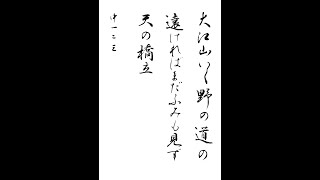 大江山いく野の道の
遠ければまだふみも見ず
天の橋立